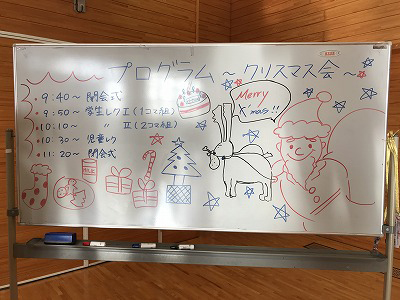 プログラム ～クリスマス会～
・9:40～ 開会式
・9:50～ 学生レクⅠ(1コマ組)
・10:10～ 〃 Ⅱ(2コマ組)
・10:30～ 児童レク
・11:20～ 閉会式
Merry
X'mas!!